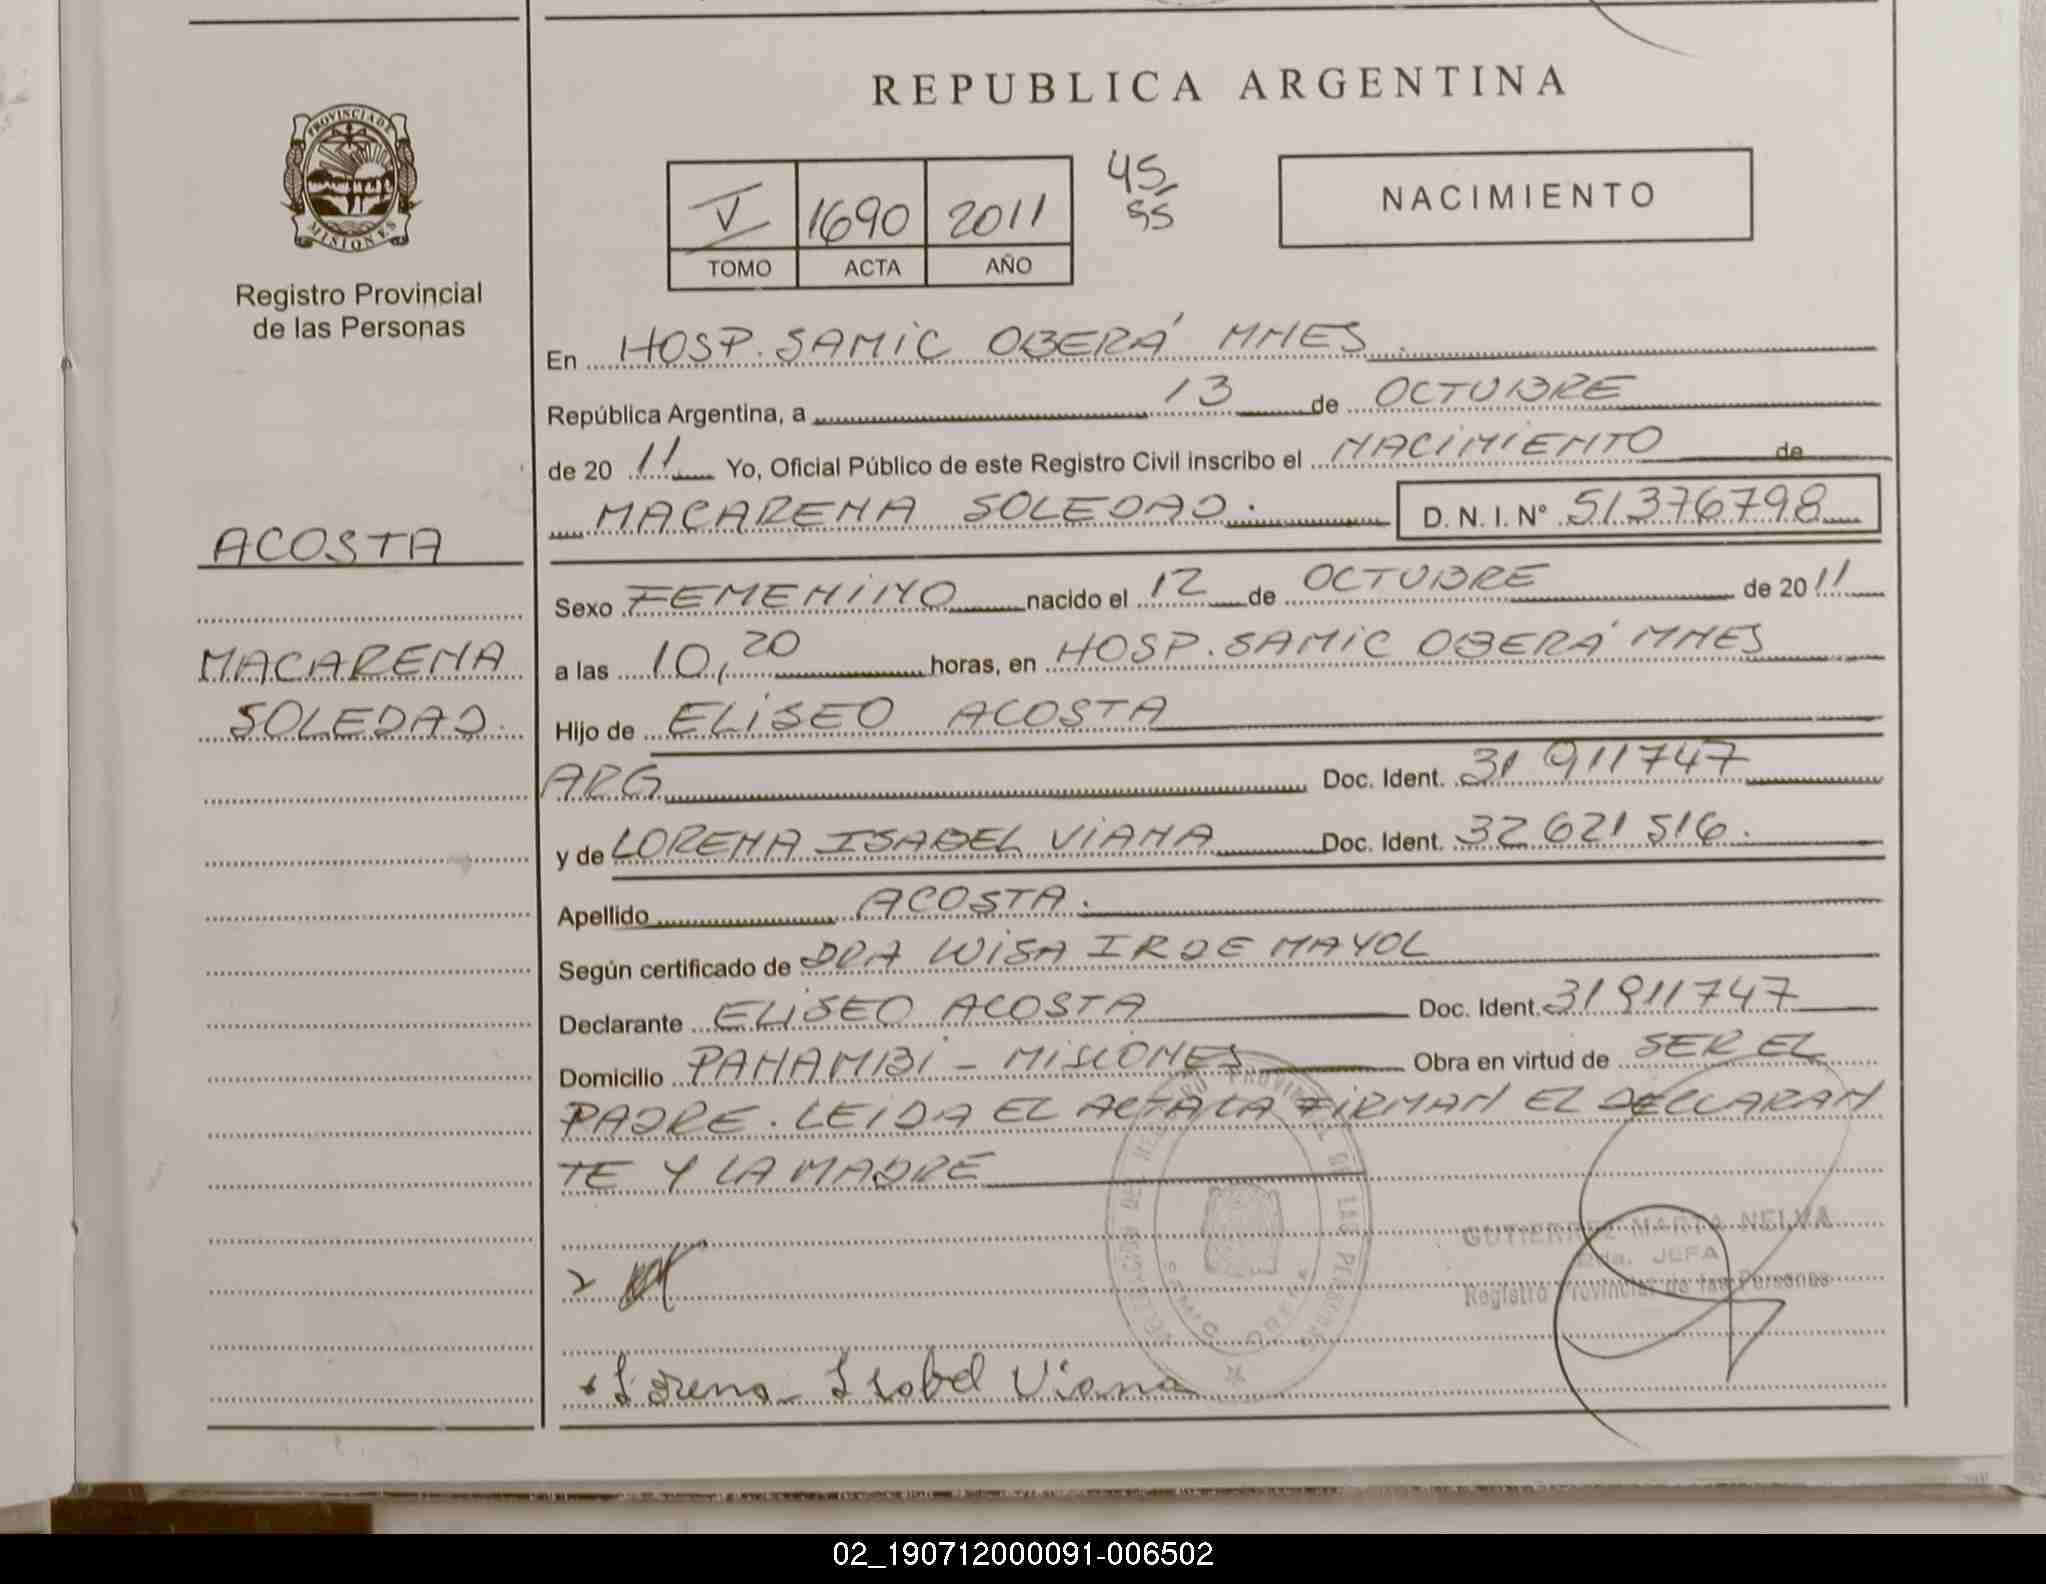 REPUBLICA ARGENTINA
PROVINCIA DE
MISIONES
Registro Provincial
de las Personas
V 1690 2011
TOMO ACTA AÑO
45/55
NACIMIENTO
En HOSP. SAMIC OBERÁ MNES.
República Argentina, a 13 de OCTUBRE
de 20 11 Yo, Oficial Público de este Registro Civil inscribo el NACIMIENTO de
MACARENA SOLEDAD. D. N. I. Nº 51376798
ACOSTA
MACARENA
SOLEDAD.
Sexo FEMENINO nacido el 12 de OCTUBRE de 20 11
a las 10,20 horas, en HOSP. SAMIC OBERÁ MNES
Hijo de ELISEO ACOSTA
ARG Doc. Ident. 31 911747
y de LORENA ISABEL VIANA Doc. Ident. 32 621 516.
Apellido ACOSTA.
Según certificado de DRA MAYOL
Declarante ELISEO ACOSTA Doc. Ident. 31911747
Domicilio PANAMBI - MISIONES Obra en virtud de SER EL
PADRE. LEIDA EL ACTA LA FIRMAN EL DECLARAN
TE Y LA MADRE
GUTIERREZ MARTA NELVA
JEFA
Registro Provincial de las Personas
Lorena Isabel Viana
02_190712000091-006502